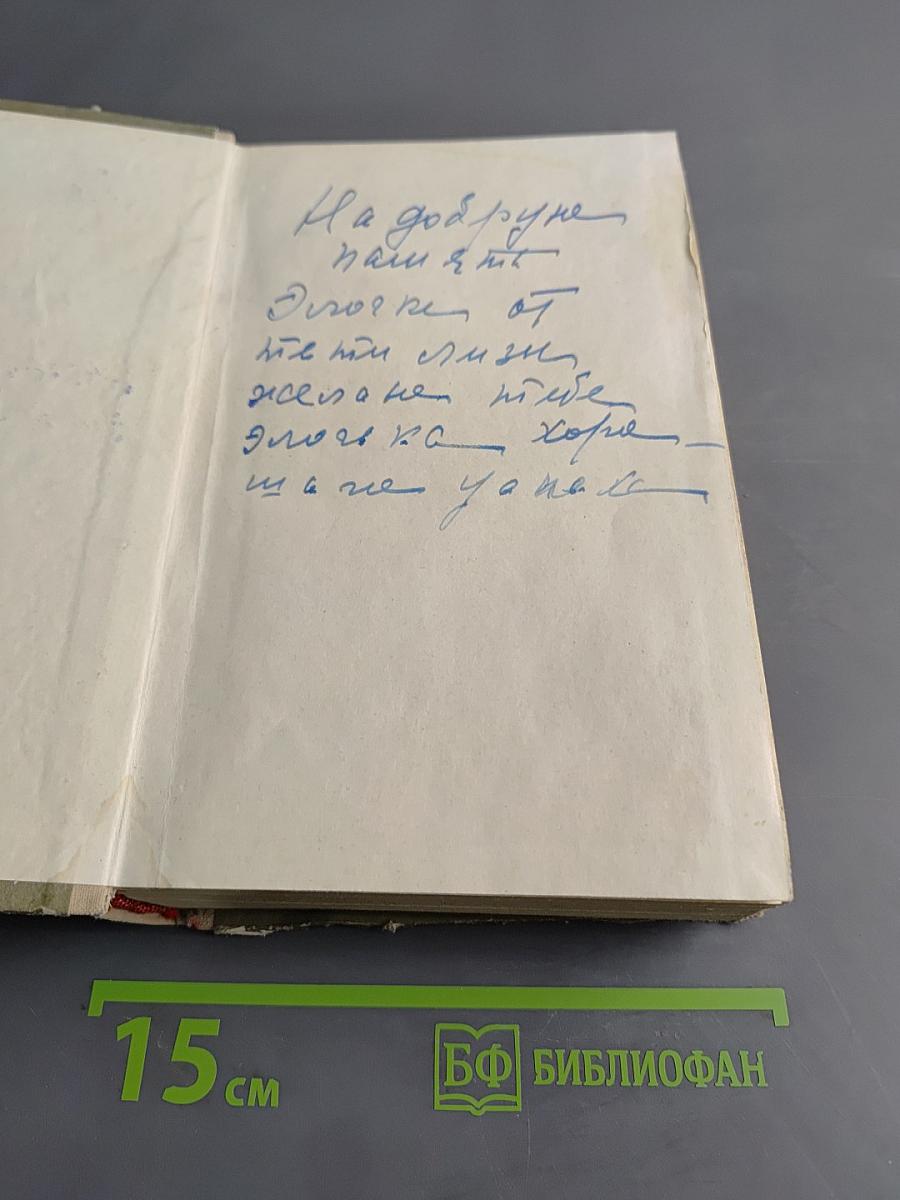 На добруне
память
Элочке от
тети лизи
желане тебе
элочька хоро-
шаге
15 см
БФ БИБЛИОФАН